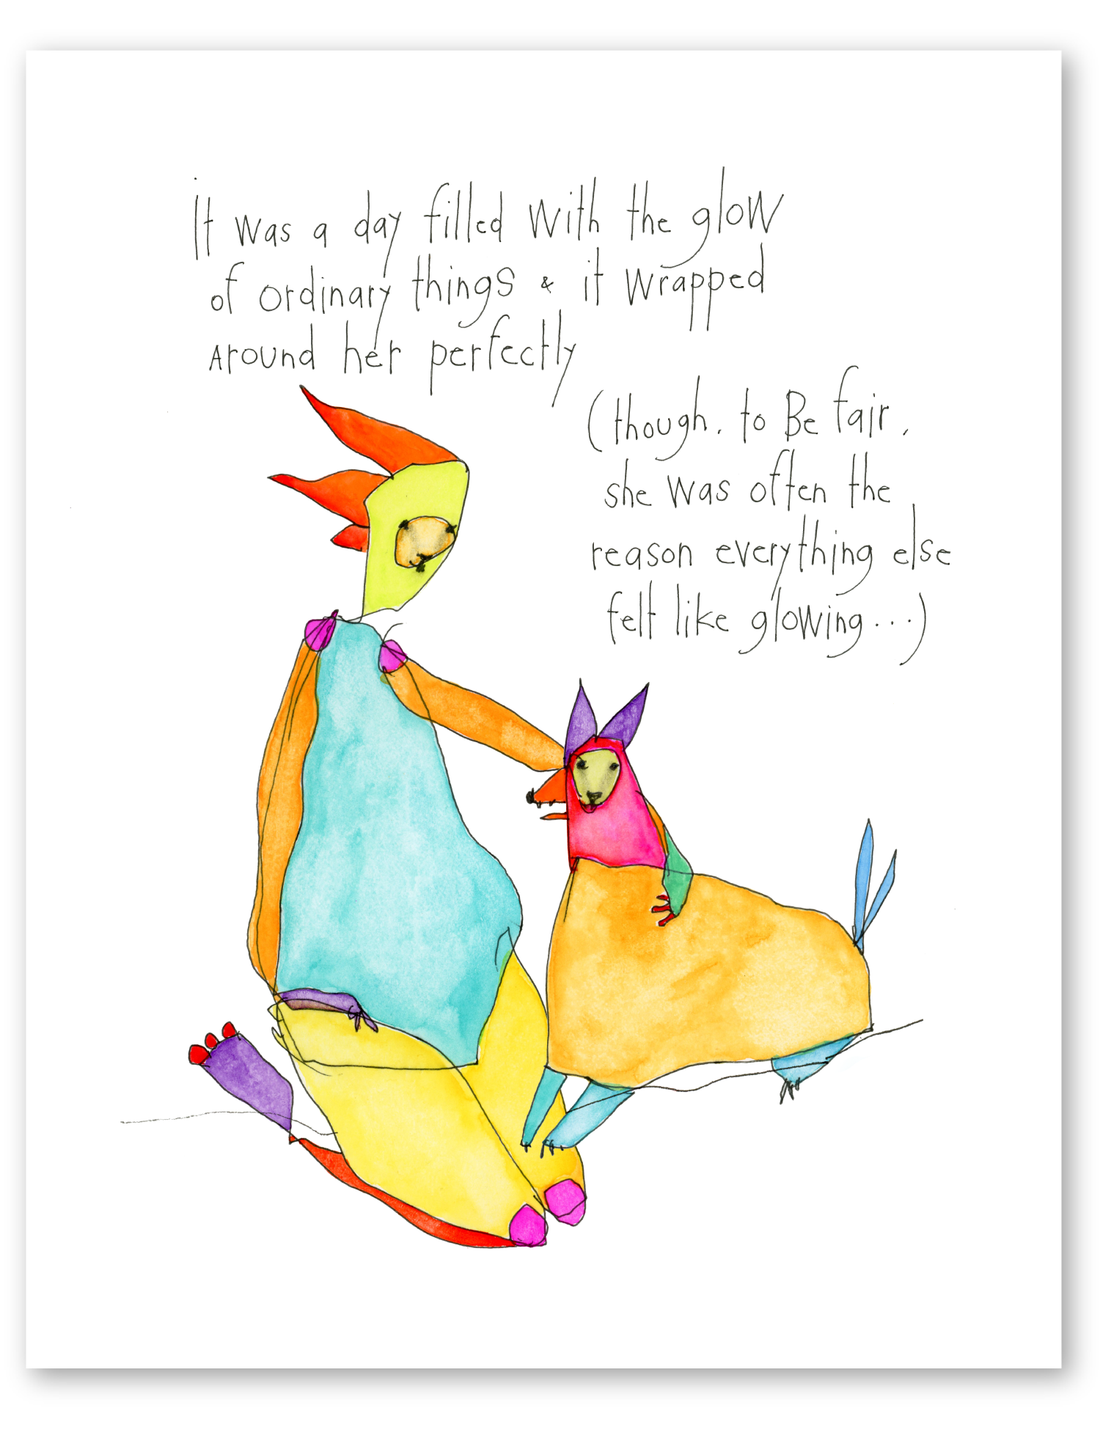 it was a day filled with the glow
of ordinary things & it wrapped
around her perfectly
(though, to Be fair,
she was often the
reason everything else
felt like glowing...)